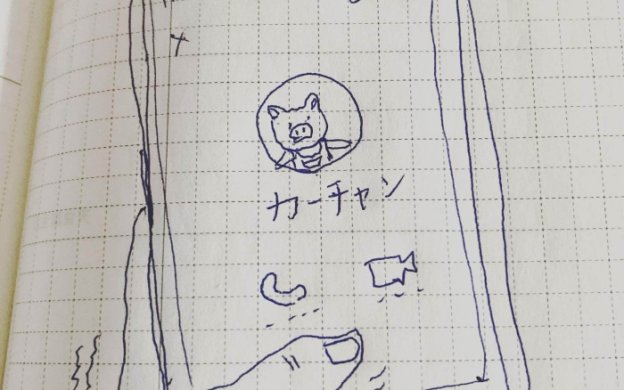 カーチャン